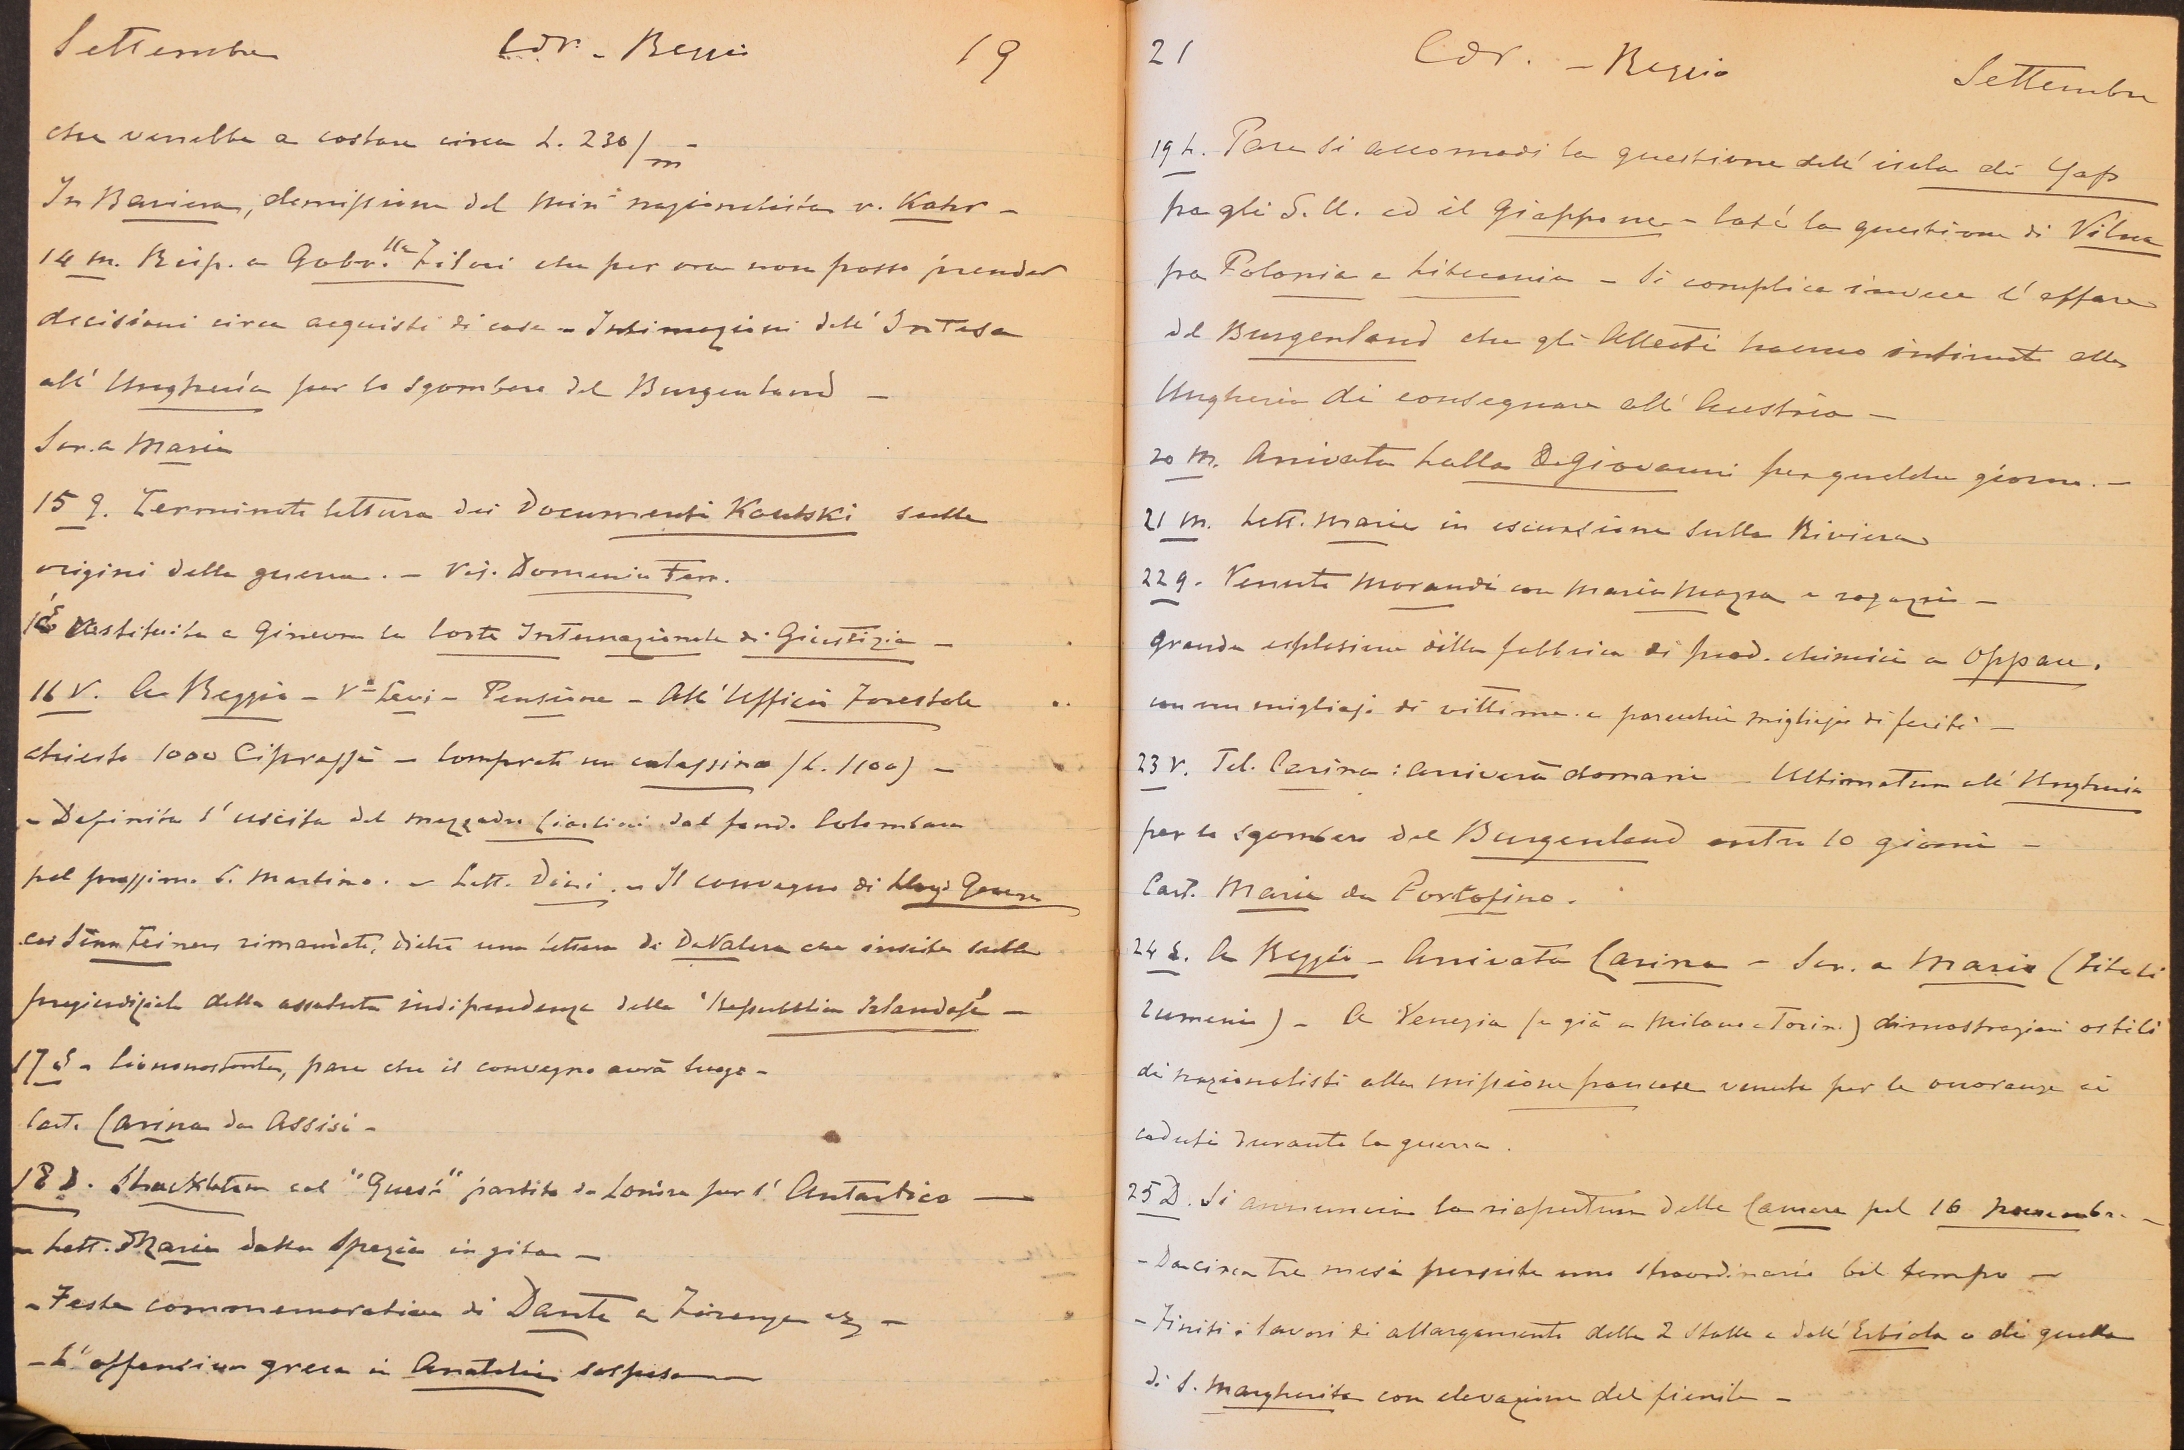 Settembre Cdr. - Reggio 19
che verrebbe a costare circa L. 230/m -
In Baviera, demissione del min.° nazionalista v. Kahr -
14 m. Risp. a Gabr.lla Filosi che per ora non posso prender
decisioni circa acquisti di case - Intimazioni dell'Intesa
all'Ungheria per lo sgombero del Burgenland -
Scr. a Maria
15 g. Terminata lettura dei Documenti Kautski sulle
origini della guerra. - Vis. Domenico Ferr.
Costituita a Ginevra la Corte Internazionale di Giustizia -
16 V. A Reggio - Va Levi - Pensione - All'Ufficio Forestale
chiesto 1000 Cipressi - Comprato un calessino (L. 1100) -
- Definita l'uscita del mezzadro dal fondo Colombara
pel prossimo S. Martino. - Lett. Dini. - Il convegno di Lloyd George
coi Sinn Feiners rimandato, dietro una lettera di De Valera che insiste sulla
pregiudiziale della assoluta indipendenza della "Repubblica Irlandese" -
17 S - Ciononostante, pare che il convegno avrà luogo -
Cart. Carina da Assisi -
18 D. Shackleton col "Quest" partito da Londra per l'Antartico -
- Lett. Maria dalla Spezia in gita -
- Feste commemorative di Dante a Firenze ecc -
- L'offensiva greca in Anatolia sospesa -
21 Cdr. - Reggio Settembre
19 L. Pare si accomodi la questione dell'isola di Yap
fra gli S. U. ed il Giappone - Così la questione di Vilna
fra Polonia e Lituania - Si complica invece l'affare
del Burgenland che gli Alleati hanno intimato alla
Ungheria di consegnare all'Austria -
20 M. Arrivata Lalla De Giovanni per qualche giorno. -
21 M. Lett. Maria in escursione sulla Riviera
22 g. Venuti Morandi con Maria Mazza e ragazzi -
Grande esplosione della fabbrica di prod. chimici a Oppau,
con un migliajo di vittime e parecchie migliaja di feriti -
23 V. Tel. Carina: arriverà domani - Ultimatum all'Ungheria
per lo sgombero del Burgenland entro 10 giorni -
Cart. Maria da Portofino.
24 S. A Reggio - Arrivata Carina - Scr. a Maria (titoli
rumeni) - A Venezia (e già a Milano e Torino) dimostrazioni ostili
di nazionalisti alla missione francese venuta per le onoranze ai
caduti durante la guerra.
25 D. Si annuncia la riapertura delle Camere pel 16 novembre. -
- Da circa tre mesi persiste uno straordinario bel tempo -
- Finiti i lavori di allargamento delle 2 stalle e dell'Erbiola e di quella
di S. Margherita con elevazione del fienile -